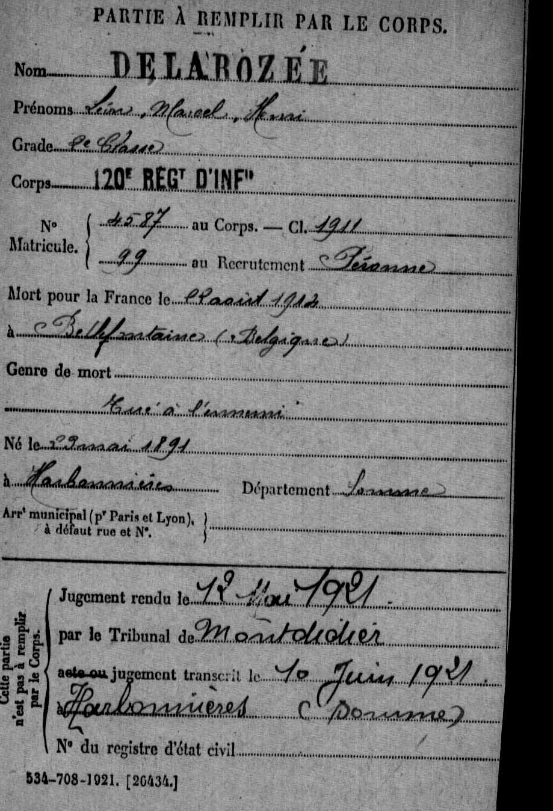 PARTIE À REMPLIR PAR LE CORPS.
Nom DELAROZÉE
Prénoms Léon, Marcel, Henri
Grade 2e Classe
Corps 120E REGT D'INFIE
No 4587 au Corps. — Cl. 1911
Matricule. 99 au Recrutement Péronne
Mort pour la France le 22 août 1914
à Bellefontaine (Belgique)
Genre de mort
Tué à l'ennemi
Né le 29 mai 1891
à Harbonnières Département Somme
Arrt municipal (pr Paris et Lyon),
à défaut rue et No.
Cette partie
n'est pas à remplir
par le Corps.
Jugement rendu le 12 Mai 1921.
par le Tribunal de Montdidier
acte ou jugement transcrit le 10 Juin 1921.
à Harbonnières (Somme)
No du registre d'état civil
534-708-1921. [26434.]